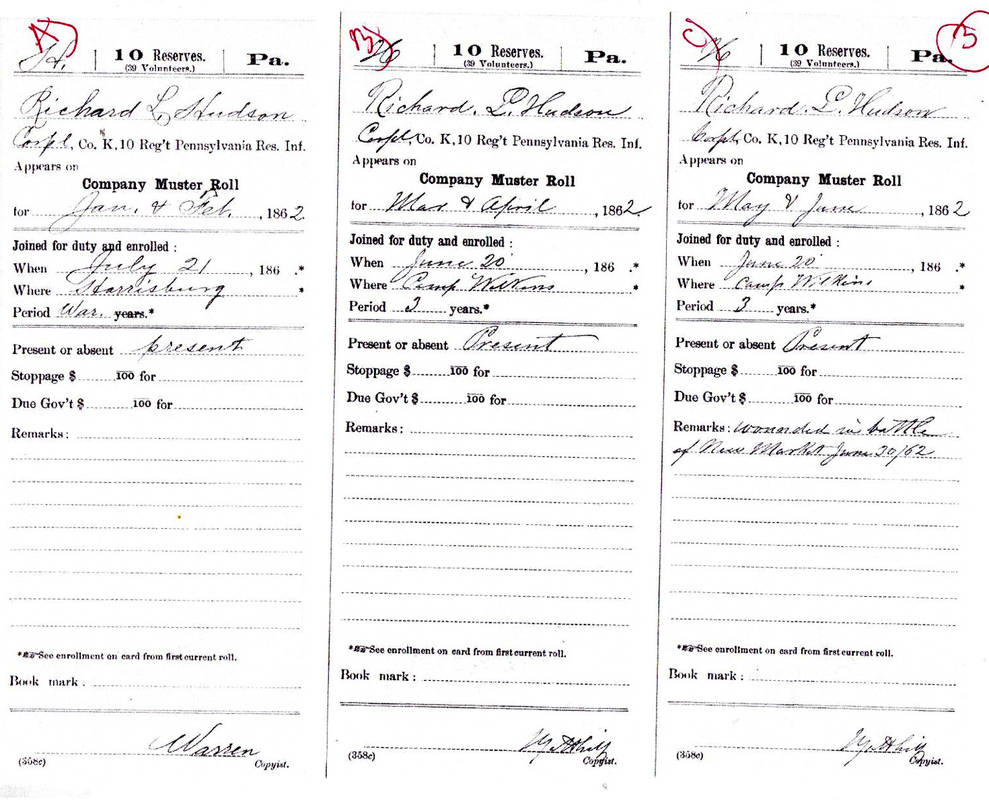 A)
H. | 10 Reserves. (39 Volunteers.) | Pa.
Richard L Hudson
Corpl, Co. K, 10 Reg't Pennsylvania Res. Inf.
Appears on
Company Muster Roll
for Jan. & Feb. , 1862
Joined for duty and enrolled :
When July 21 , 186 .*
Where Harrisburg *
Period War. years.*
Present or absent present
Stoppage $ 100 for
Due Gov't $ 100 for
Remarks :
* See enrollment on card from first current roll.
Book mark :
Warren
(358c) Copyist.
B)
H | 10 Reserves. (39 Volunteers.) | Pa.
Richard. L. Hudson
Corpl, Co. K, 10 Reg't Pennsylvania Res. Inf.
Appears on
Company Muster Roll
for Mar & April , 1862
Joined for duty and enrolled :
When June 20 , 186 .*
Where Camp Wilkins *
Period 3 years.*
Present or absent Present
Stoppage $ 100 for
Due Gov't $ 100 for
Remarks :
* See enrollment on card from first current roll.
Book mark :
(358c) Copyist.
C) 15
H | 10 Reserves. (39 Volunteers.) | Pa.
Richard. L. Hudson
Corpl, Co. K, 10 Reg't Pennsylvania Res. Inf.
Appears on
Company Muster Roll
for May & June , 1862
Joined for duty and enrolled :
When June 20 , 186 .*
Where Camp Wilkins *
Period 3 years.*
Present or absent Present
Stoppage $ 100 for
Due Gov't $ 100 for
Remarks : wounded in battle
of New Market June 30/62
* See enrollment on card from first current roll.
Book mark :
(358c) Copyist.